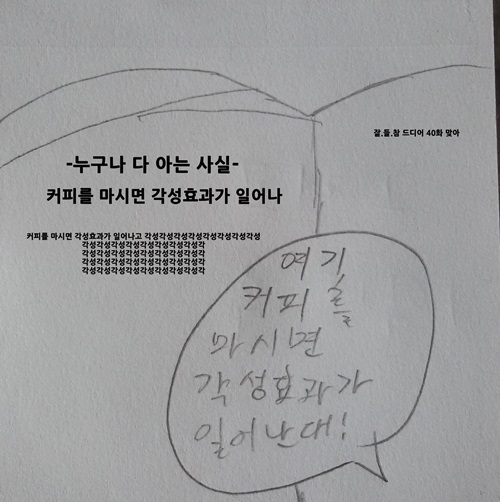 잘.둘.참 드디어 40화 맞아
-누구나 다 아는 사실-
커피를 마시면 각성효과가 일어나
커피를 마시면 각성효과가 일어나고 각성각성각성각성각성각성각성각성
각성각성각성각성각성각성각성각성각
각성각성각성각성각성각성각성각성각
각성각성각성각성각성각성각성각성각
각성각성각성각성각성각성각성각성각
여기
커피를
마시면
각성효과가
일어난대!